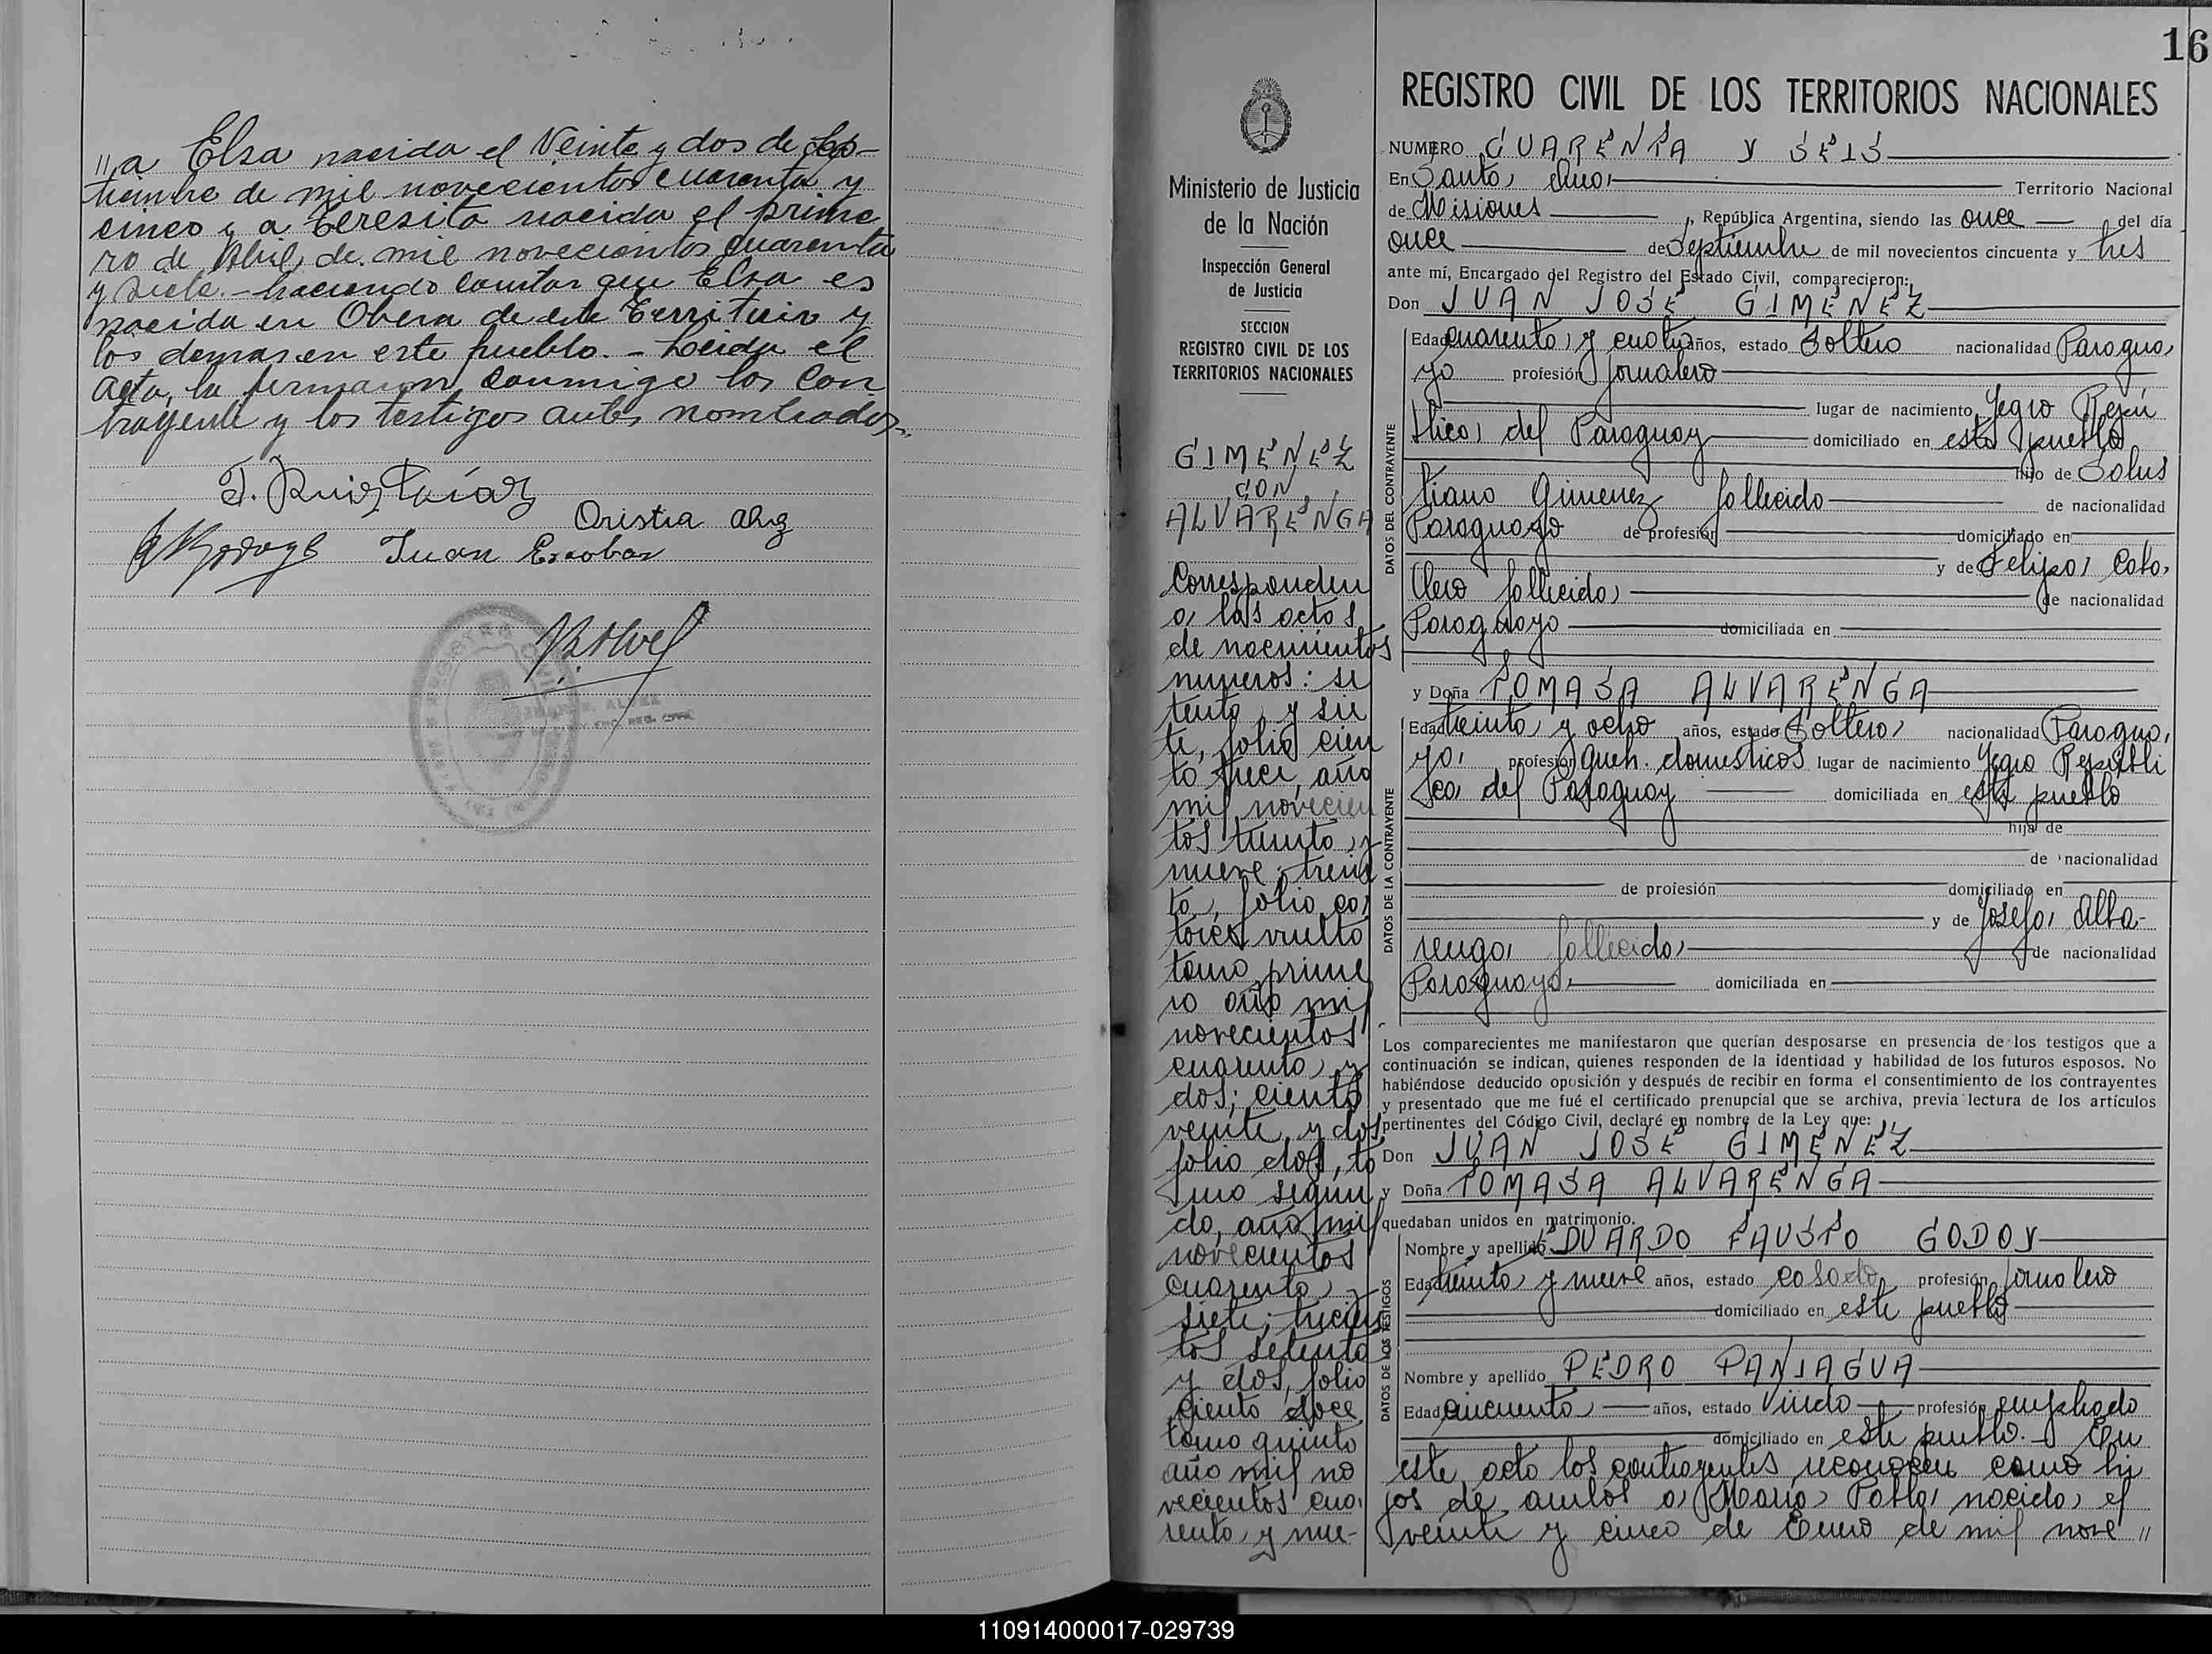 "a Elsa nacida el Veinte y dos de Sep-
tiembre de mil novecientos cuarenta y
cinco y a Teresita nacida el prime
ro de Abril de mil novecientos cuarenta
y siete.- haciendo constar que Elsa es
nacida en Obera de este Territorio y
los demas en este pueblo.- Leida el
acta, la firmaron conmigo los con
trayente y los testigos antes nombrados.
Juan Escobar
16
REGISTRO CIVIL DE LOS TERRITORIOS NACIONALES
Ministerio de Justicia
de la Nación
Inspección General
de Justicia
SECCION
REGISTRO CIVIL DE LOS
TERRITORIOS NACIONALES
GIMENEZ
CON
ALVARENGA
Corresponden
a las actas
de nacimientos
numeros: se
tenta y sie
te, folio cien
to trece, año
mil novecien
tos treinta y
nueve; trein
ta, folio ca
torce vuelto
tomo prime
ro año mil
novecientos
cuarenta y
dos; ciento
veinte y dos
folio dos, to
mo segun
do, año mil
novecientos
cuarenta y
siete; trecien
tos setenta
y dos, folio
ciento doce
tomo quinto
año mil no
vecientos cua
renta y nue-
NUMERO CUARENTA Y SEIS
En Santa Ana Territorio Nacional
de Misiones, República Argentina, siendo las once del día
once de Septiembre de mil novecientos cincuenta y tres
ante mí, Encargado del Registro del Estado Civil, comparecieron:
Don JUAN JOSE GIMENEZ
DATOS DEL CONTRAYENTE
Edad cuarenta y cuatro años, estado Soltero nacionalidad Paragua
yo profesión jornalero
lugar de nacimiento Yegro Repú
blica del Paraguay domiciliado en este pueblo
hijo de Salus
tiano Gimenez fallecido de nacionalidad
Paraguayo de profesión domiciliado en
y de Felipa Caba
llero fallecida de nacionalidad
Paraguaya domiciliada en
y Doña TOMASA ALVARENGA
DATOS DE LA CONTRAYENTE
Edad treinta y ocho años, estado Soltera nacionalidad Paragua
ya profesión queh. domesticos lugar de nacimiento Yegro Repúbli
ca del Paraguay domiciliada en este pueblo
hija de
de nacionalidad
de profesión domiciliado en
y de Josefa Alba-
renga fallecida de nacionalidad
Paraguaya domiciliada en
Los comparecientes me manifestaron que querían desposarse en presencia de los testigos que a
continuación se indican, quienes responden de la identidad y habilidad de los futuros esposos. No
habiéndose deducido oposición y después de recibir en forma el consentimiento de los contrayentes
y presentado que me fué el certificado prenupcial que se archiva, previa lectura de los artículos
pertinentes del Código Civil, declaré en nombre de la Ley que:
Don JUAN JOSE GIMENEZ
y Doña TOMASA ALVARENGA
quedaban unidos en matrimonio.
DATOS DE LOS TESTIGOS
Nombre y apellido EDUARDO FAUSTO GODOY
Edad treinta y nueve años, estado casado profesión jornalero
domiciliado en este pueblo
Nombre y apellido PEDRO PANIAGUA
Edad cincuenta años, estado viudo profesión empleado
domiciliado en este pueblo.- En
este acto los contrayentes reconocen como hi
jos de ambos a Maria Pabla nacida el
veinte y cinco de Enero de mil nove "
110914000017-029739